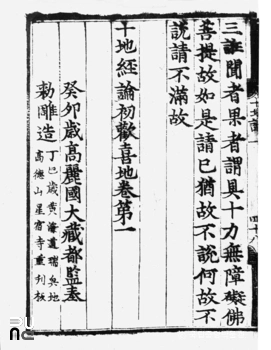 三聞者果者謂具十力無障礙佛
菩提故如是請已猶故不說何故不
說請不滿故
十地經論初歡喜地卷第一
癸卯歲高麗國大藏都監奉
勅雕造
丁巳歲黃海道瑞興地
高德山星宿寺重刊板